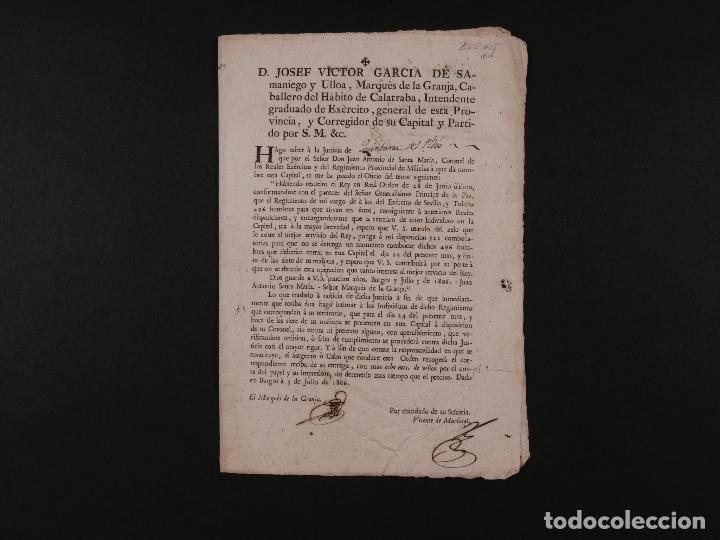 D. JOSEF VICTOR GARCIA DE SA-
maniego y Ulloa, Marquès de la Granja, Ca-
ballero del Habito de Calatraba, Intendente
graduado de Exèrcito, general de esta Pro-
vincia, y Corregidor de su Capital y Parti-
do por S. M. &c.
HAgo saber à la Justicia de Quintana del Pidio
que por el Señor Don Juan Antonio de Santa Marìa, Coronel de
los Reales Exércitos y del Regimiento Provincial de Milicias à que dà nombre
esta Capital, se me ha pasado el Oficio del tenor siguiente:
"Habiendo resuelto el Rey en Real Orden de 28 de Junio ùltimo,
conformandose con el parecer del Señor Generalísimo Principe de la Paz,
que el Regimiento de mi cargo dè à los del Exército de Sevilla, y Toledo
496 hombres para que sirvan en èstos, consiguiente à anteriores Reales
disposiciones, y encargandoseme que la reunion de estos Individuos en la
Capital, sea à la mayor brevedad, espero que V. S. usando del zelo que
le asiste al mejor servicio del Rey, ponga à mi disposicion convoca-
torias para que no se detenga un momento combocar dichos 496 hom-
bres que deberàn entrar en esta Capital el dia 24 del presente mes, y an-
tes de las siete de su mañana, y espero que V. S. contribuirà por su parte à
que no se retarde esta operacion que tanto interesa al mejor servicio del Rey.
Dios guarde à V. S. muchos años. Burgos y Julio 5 de 1806. - Juan
Antonio Santa Marìa. - Señor Marquès de la Granja."
Lo que traslado à noticia de dicha Justicia à fin de que inmediata-
mente que reciba èsta haga intimar à los Individuos de dicho Regimiento
que correspondan à su territorio, que para el dia 24 del presente mes, y
hora de las siete de su mañana se presenten en esta Capital à disposicion
de su Coronel, sin escusa ni pretexto alguno, con apercibimiento, que ve-
rificandose omision, ò falta de cumplimiento se procederà contra dicha Jus-
ticia con el mayor rigor. Y à fin de que conste la responsabilidad en que se
constituye, el Sargento ò Cabo que conduce esta Orden recogerà el cor-
respondiente recibo de su entrega, con mas ocho mrs. de vellon por el cos-
te del papel y su impresion, sin detenerle mas tiempo que el preciso. Dada
en Burgos à 5 de Julio de 1806.
El Marquès de la Granja.
Por mandado de su Señoría.
Vicente de Mariscal.
todocoleccion
todocoleccion.net